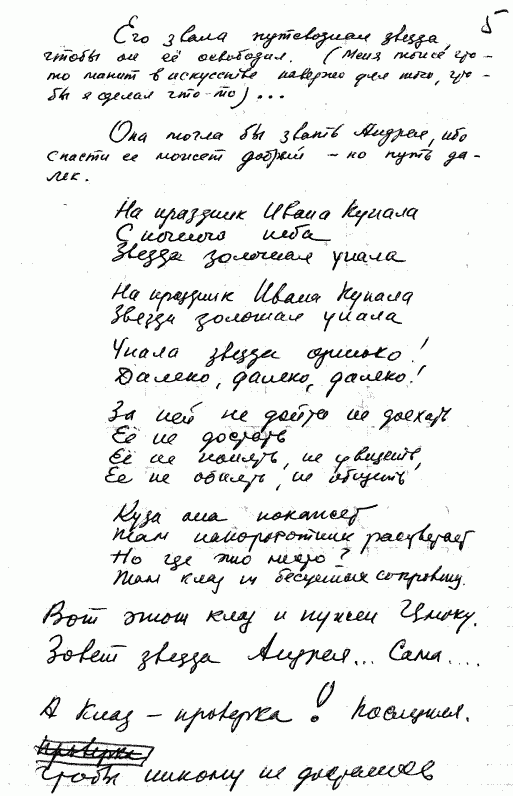 5
Его звала путеводная звезда,
чтобы он её освободил. (Меня тоже что-
то манит в искусстве наверно для того, что-
бы я сделал что-то)...
Она могла бы звать Андрея, ибо
спасти ее может добрый – но путь да-
лек.
На праздник Ивана Купала
С ночного неба
Звезда золотая упала
На праздник Ивана Купала
Звезда золотая упала
Упала звезда одиноко!
Далеко, далеко, далеко!
За ней не дойти не доехать
Её не достать
Её не понять, не увидеть,
Ее не обнять, не обидеть,
Куда она покажет
Там папоротник расцветает
Но где это место?
Там клад и бесценные сокровищ.
Вот этот клад и нужен Цмоку.
Зовет звезда Андрея... Сама....
А клад – проверка! Последняя.
Проверка
Чтобы никому не достался